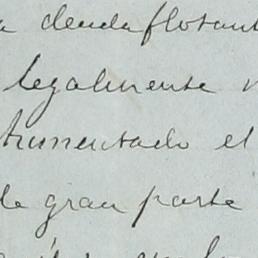 a deuda flotant
legalmente
trumentado el
de gran parte